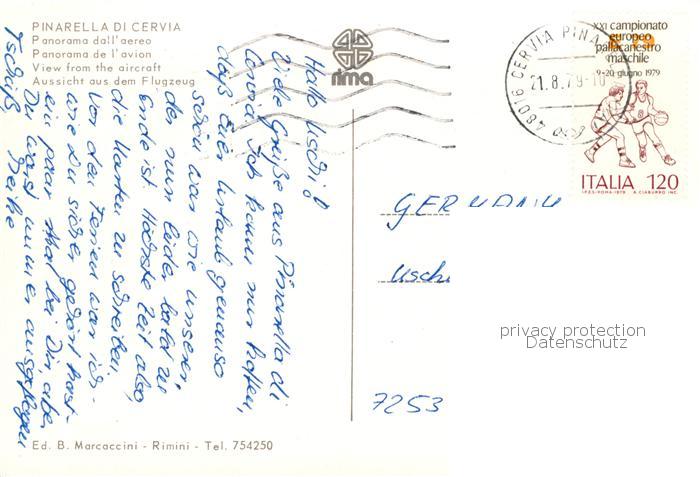 PINARELLA DI CERVIA
Panorama dall'aereo
Panorama de l'avion
View from the aircraft
Aussicht aus dem Flugzeug
rima
Hallo Uschi!
Viele Grüße aus Pinarella di
Cervia. Ich kann nur hoffen,
daß Euer Urlaub genauso
schön war wie unserer,
der nun leider bald zu
Ende ist. Höchste Zeit also,
die Karten zu schreiben.
Vor den Ferien war ich -
wie Du sicher gehört hast -
ein paar Mal bei Dir, aber
Du warst immer ausgeflogen
Tschüß
Heike
Ed. B. Marcaccini - Rimini - Tel. 754250
48016 CERVIA PINA
21.8.79-10
XXI campionato
europeo
pallacanestro
maschile
9-20 giugno 1979
ITALIA 120
I.P.Z.S.-ROMA-1979 A. CIABURRO INC.
GERMANIA
Uschi
privacy protection
Datenschutz
7253